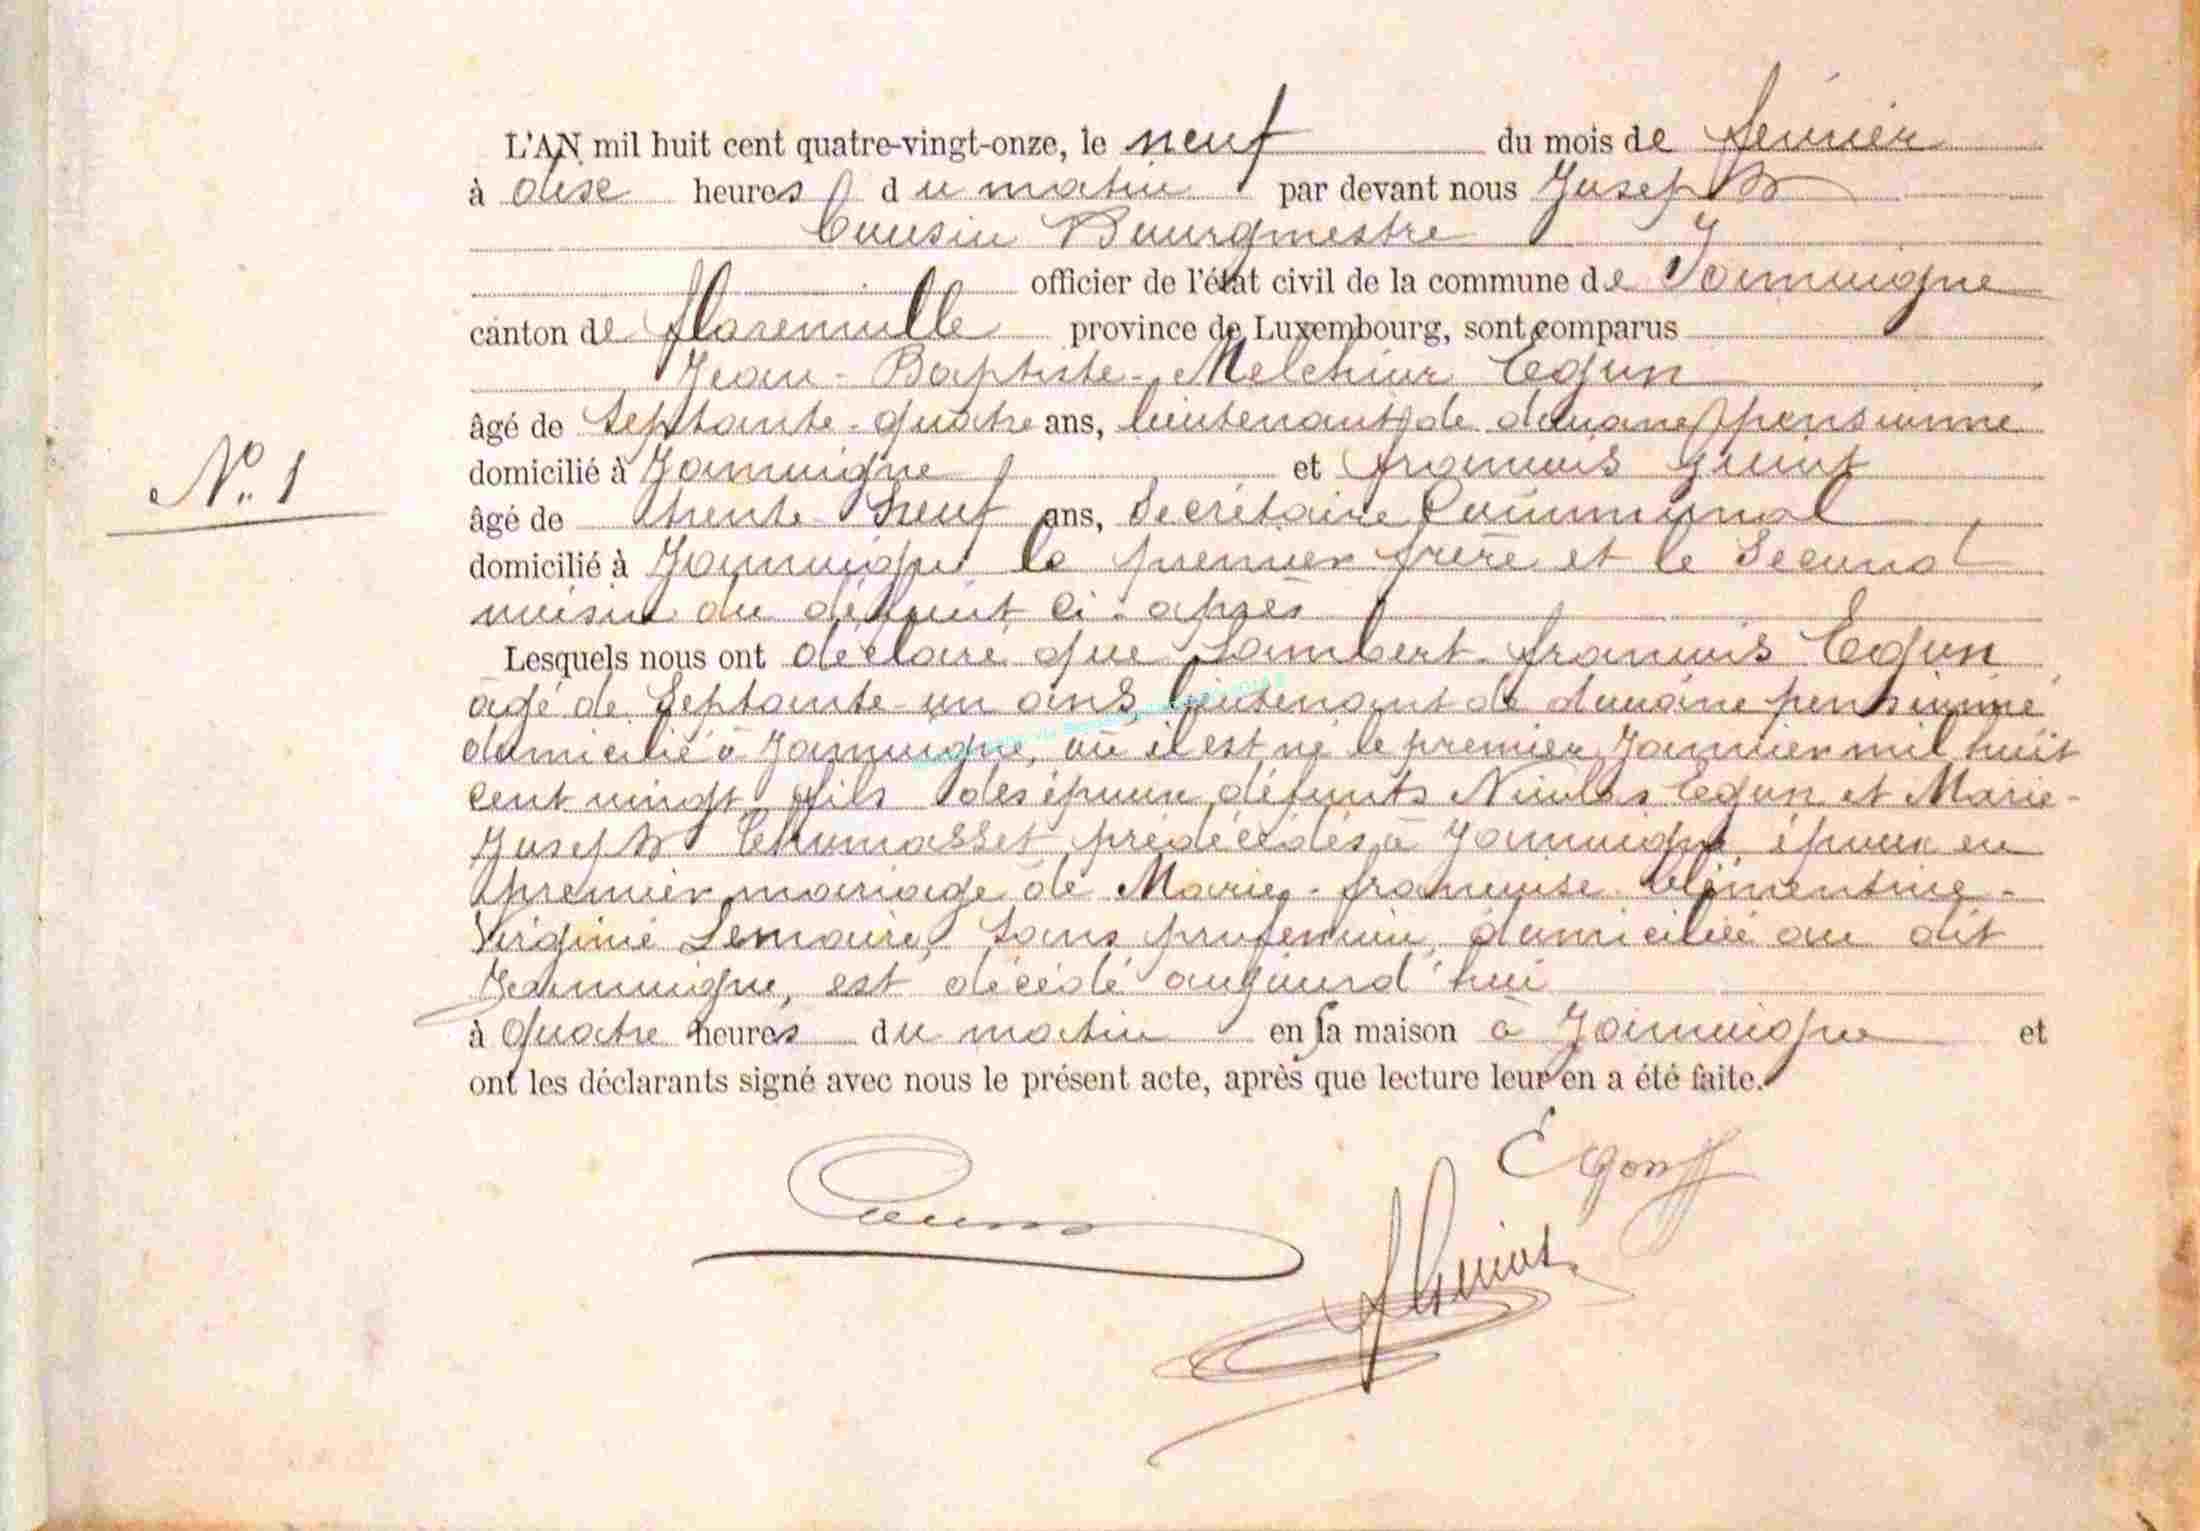 L'AN mil huit cent quatre-vingt-onze, le neuf du mois de février
à dix heures du matin par devant nous Joseph
Cousin Bourgmestre
officier de l'état civil de la commune de Jamoigne
canton de florenville province de Luxembourg, sont comparus
Jean-Baptiste-Melchior Egon
âgé de septante-quatre ans, lieutenant de douane pensionné
domicilié à Jamoigne et françois Guiot
N° 1
âgé de trente neuf ans, Secrétaire Communal
domicilié à Jamoigne le premier frère et le second
voisin du défunt ci-après
Lesquels nous ont déclaré que Lambert-françois Egon
âgé de septante-un ans, lieutenant de douane pensionné,
domicilié à Jamoigne, où il est né le premier Janvier mil huit
cent vingt, fils des époux défunts Nicolas Egon et Marie-
Joseph Thomasset prédécédés à Jamoigne, époux en
premier mariage de Marie-françoise Clémentine-
Virginie Lemaire, sans profession, domiciliée au dit
Jamoigne, est décédé aujourd'hui
à quatre heures du matin en sa maison à Jamoigne et
ont les déclarants signé avec nous le présent acte, après que lecture leur en a été faite.
Egon
Cousin
f Guiot